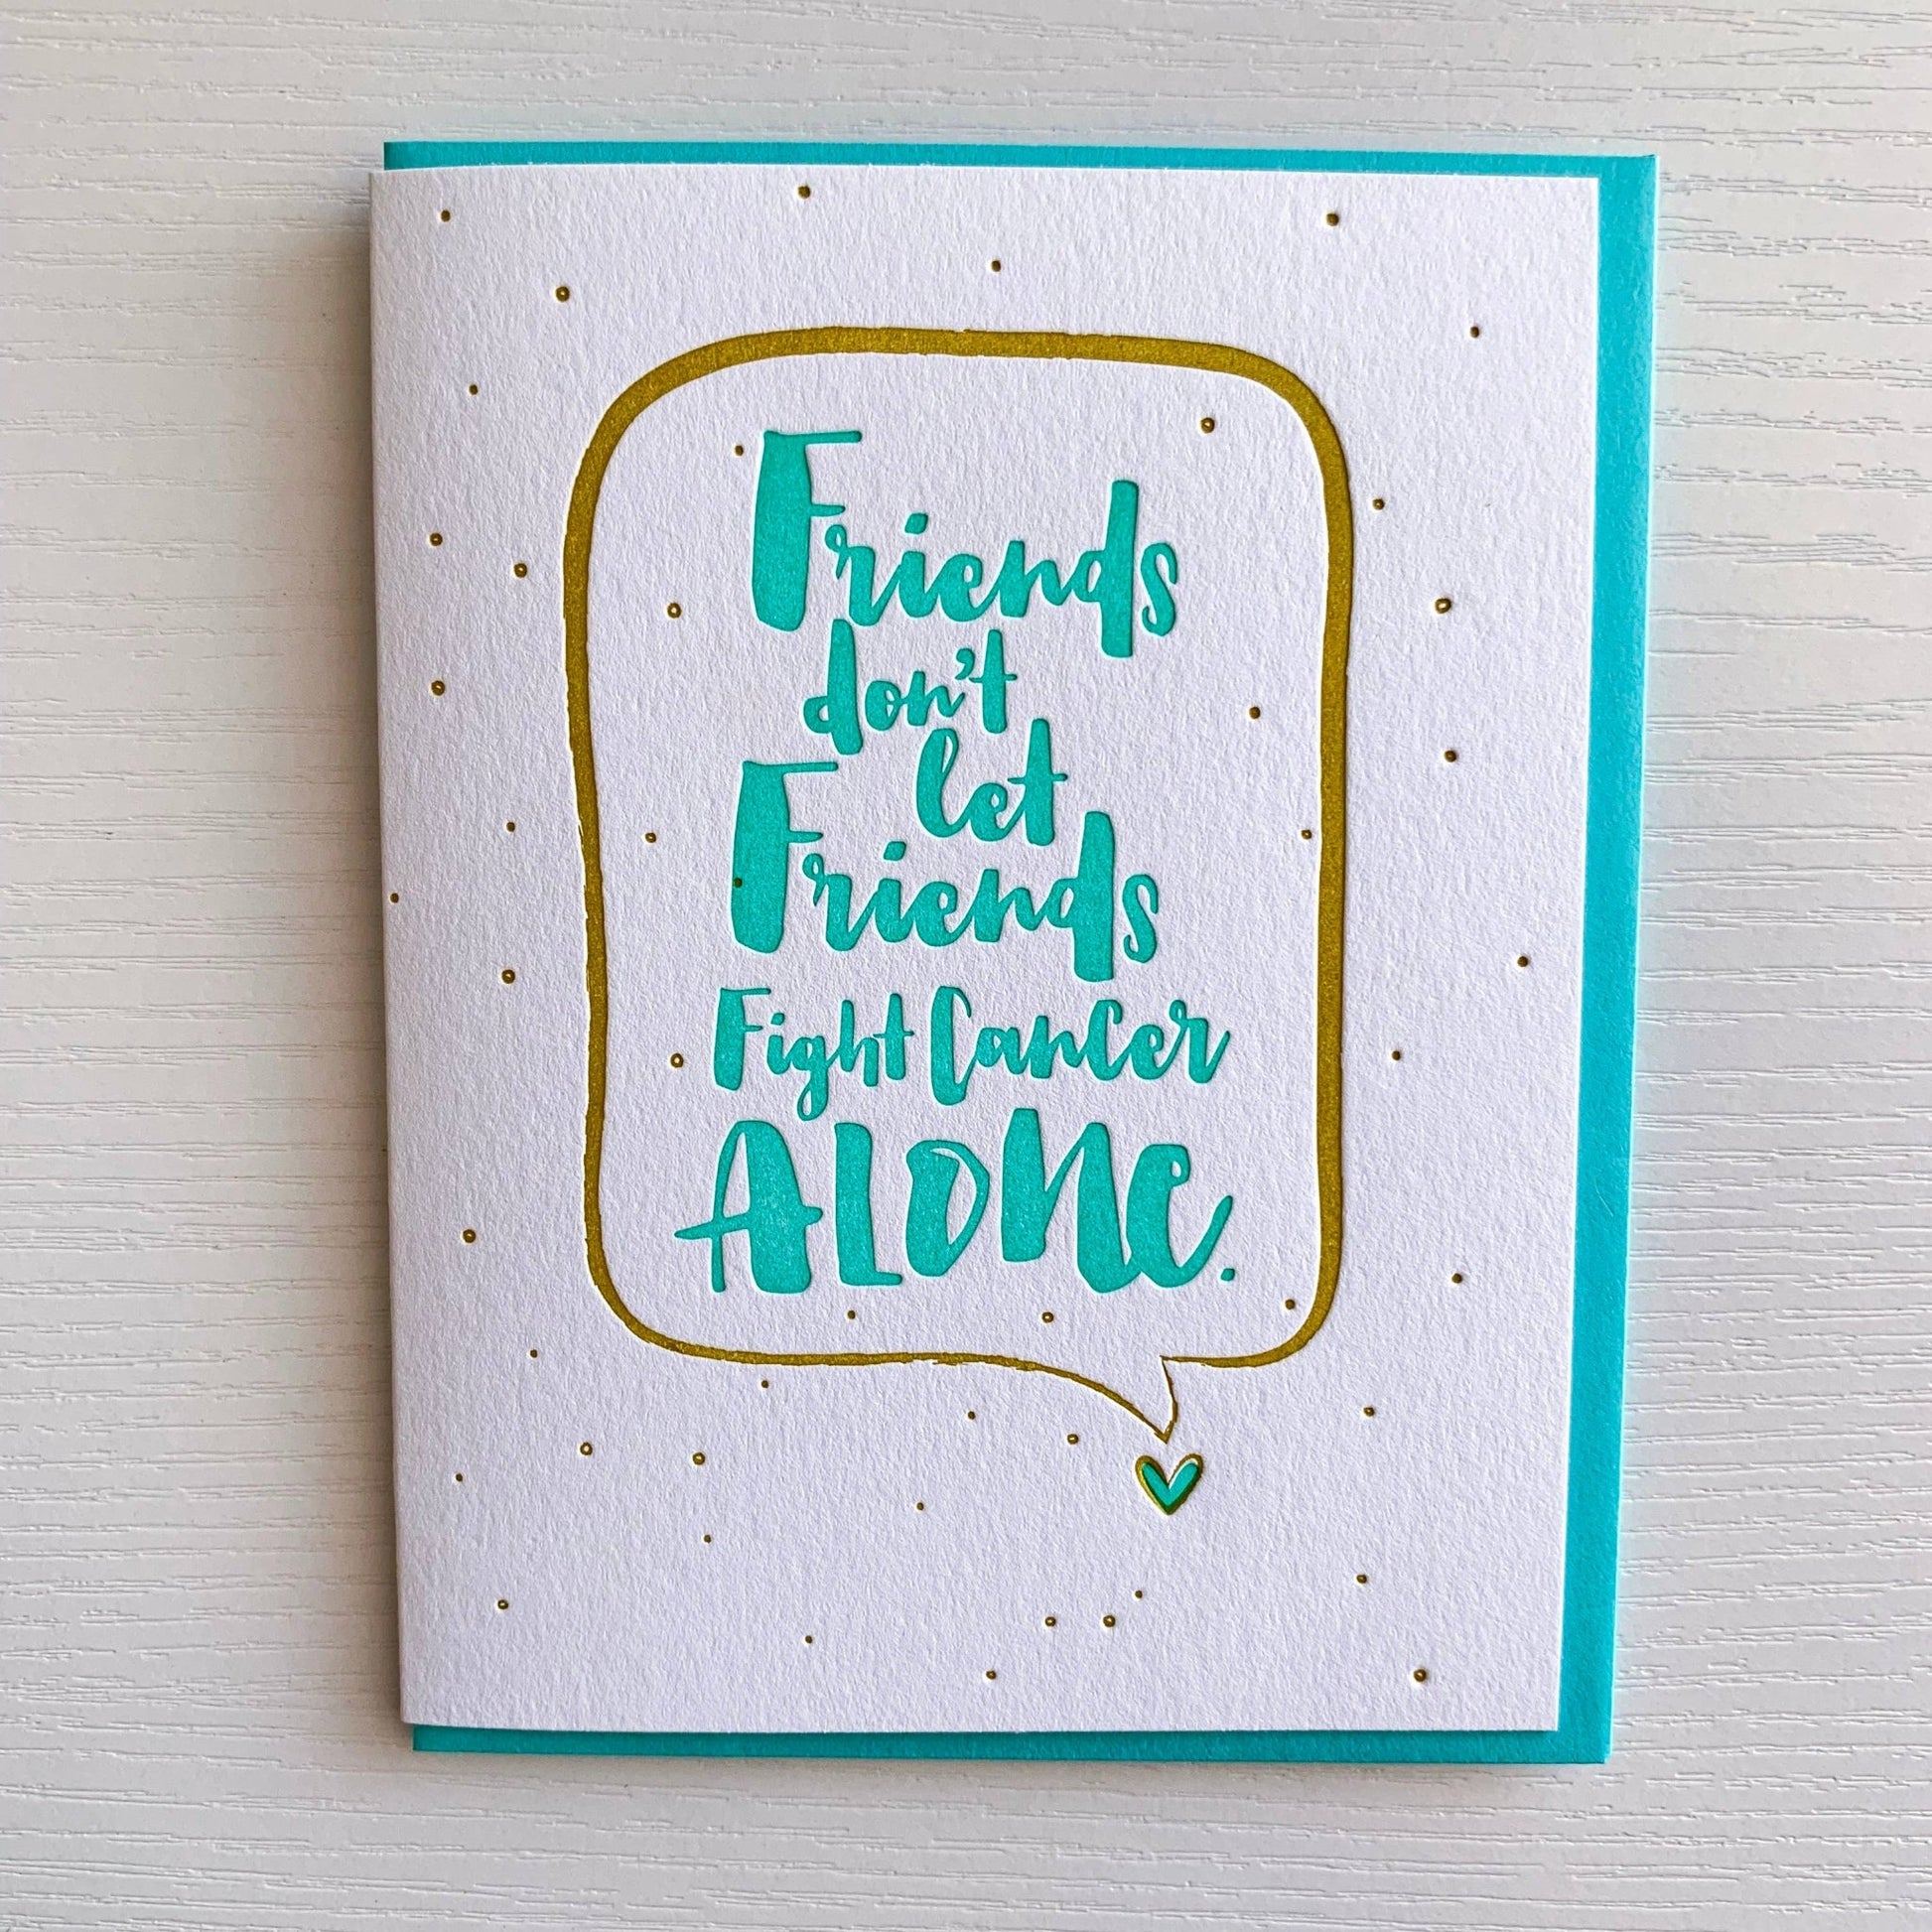 Friends
don't
let
Friends
Fight Cancer
ALONE.